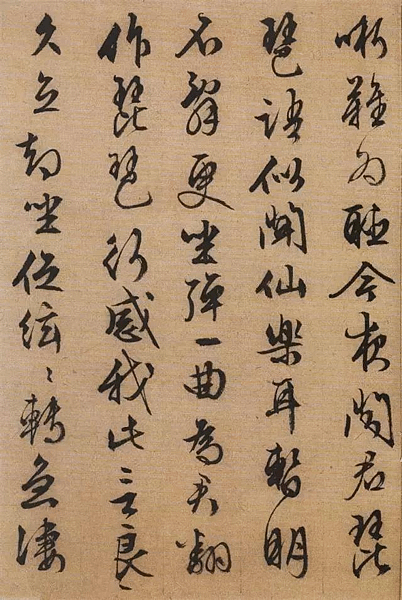 哳難為聽今夜聞君琵
琶語似聞仙樂耳暫明
不辭更坐彈一曲為君翻
作琵琶行感我此言良〻
久立却坐促絃〻轉急凄